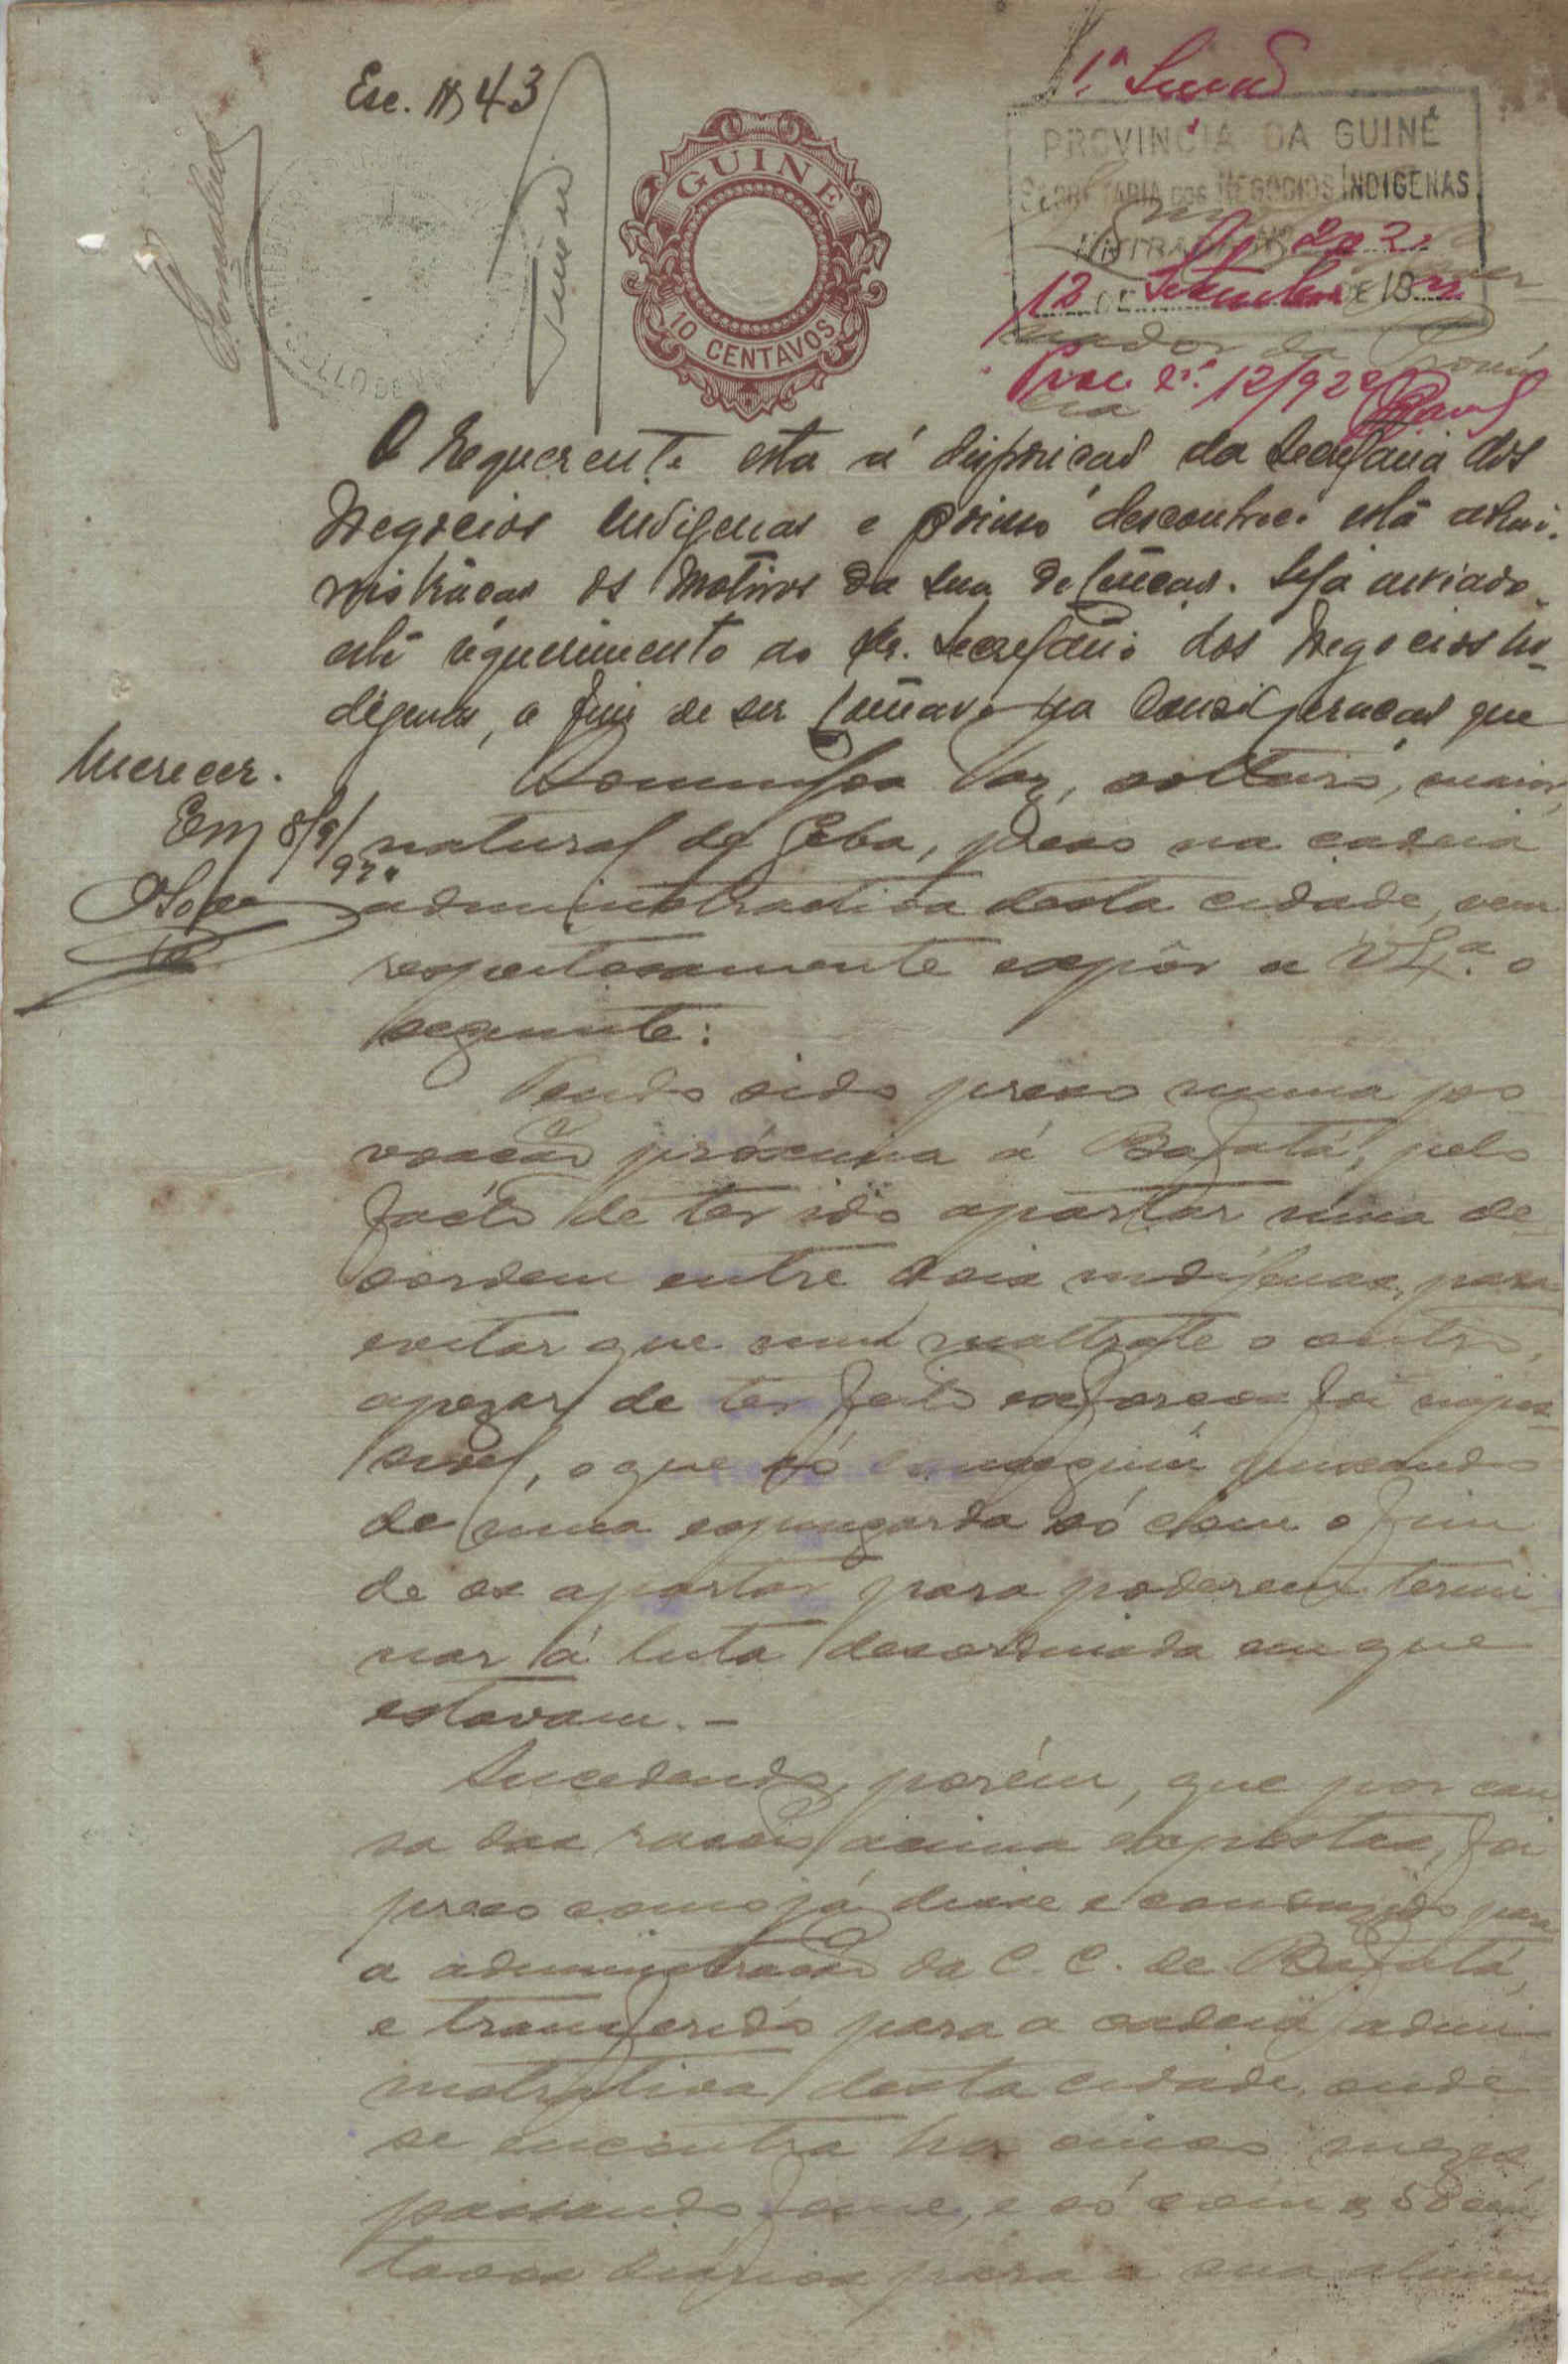 Esc. 43
GUINÉ
10 CENTAVOS
1ª
PROVINCIA DA GUINÉ
SECRETARIA DOS NEGOCIOS INDIGENAS
ENTRADA Nº 202
12 DE Setembro DE 1922
Proc. 12/922
nador da Provin
cia
O requerente esta á disposicaõ da Secretaria dos
Negocios Indigenas e por isso desconhece esta admi-
nistracaõ os motivos da sua detencaõ. Seja enviado
este requerimento ao Sr. Secretario dos Negocios In-
digenas, a fim de ser tomado na consideracaõ que
merecer.
Em 8/9/922
Domingos Vaz, solteiro, maior,
natural de Geba, preso na cadeia
administractiva desta cidade, vem
respeitosamente expôr a V. Exª. o
seguinte:
Tendo sido preso numa po
voacaõ próxima á Bafatá, pelo
facto de ter ido apartar uma de
sordem entre dois indígenas, para
evitar que um maltrate o outro,
apezar de ter feito esforcos foi impos-
sivel, o que só conseguiu puxando
de uma espingarda só com o fim
de os apartar para poderem termi
nar á luta desordinada em que
estavam. -
Sucedendo, porém, que por cau
sa das rasoẽs acima expostas, foi
preso como já disse e conduzido para
a administracaõ da C. C. de Bafatá,
e transferido para a cadeia admi-
nistrativa desta cidade, onde
se encontra ha cinco mezes
passando fome, e só com 50 cen
tavos diários para a sua alimen